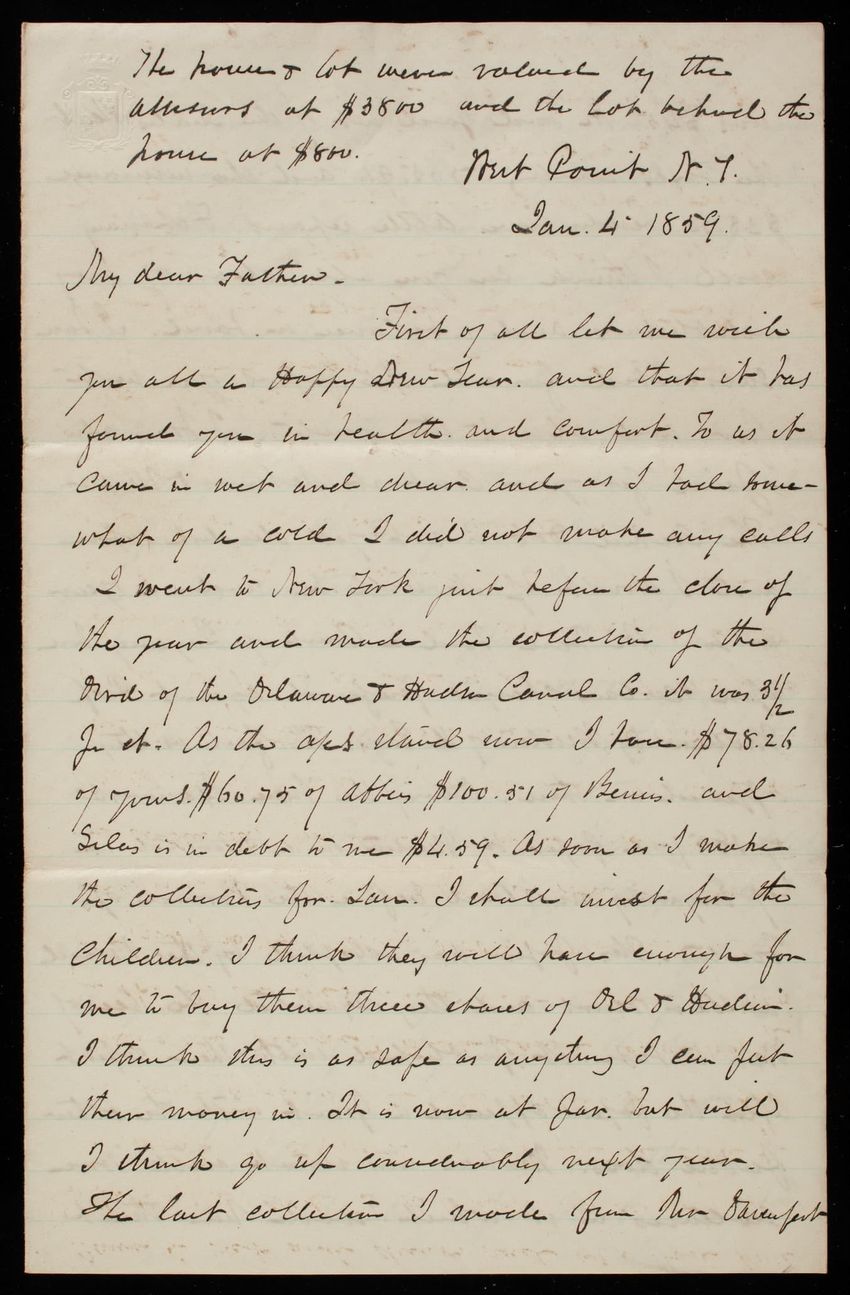 The house & lot were valued by the
assessors at $3800 and the lot behind the
house at $800.
West Point N.Y.
Jan. 4 1859.
My dear Father.
First of all let me wish
you all a Happy New Year. and that it has
found you in health and comfort. To us it
came in wet and drear and as I had some-
what of a cold I did not make any calls
I went to New York just before the close of
the year and made the collection of the
Div'd of the Delaware & Hudson Canal Co. it was 3 1/2
pr ct. As the a/cs. stand now I have $78.26
of yours. $60.75 of Abbies $100.51 of Bennis. and
Silas is in debt to me $4.59. As soon as I make
the collections for Jan. I shall invest for the
children. I think they will have enough for
me to buy them three shares of Del & Hudson.
I think this is as safe as anything I can put
their money in. It is now at par. but will
I think go up considerably next year.
The last collection I made from Mr Davenport